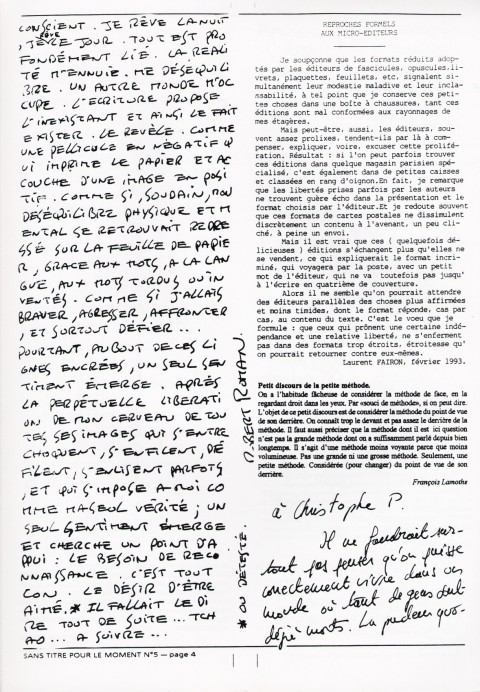 CONSCIENT. JE RÊVE LA NUIT
, JE RÊVE JOUR. TOUT EST PRO
FONDÉMENT LIÉ. LA REALI
TÉ M'ENNUIE. ME DÉSÉQUILI
BRE. UN AUTRE MONDE M'OC
CUPE. L'ECRITURE PROPOSE
L'INEXISTANT ET AINSI LE FAIT
EXISTER. LE REVÈLE. COMME
UNE PELLICULE EN NÉGATIF Q
UI IMPRIME LE PAPIER ET AC
COUCHE D'UNE IMAGE EN POSI
TIF. COMME SI, SOUDAIN, MON
DÉSÉQUILIBRE PHYSIQUE ET M
ENTAL SE RETROUVAIT REDRE
SSÉ SUR LA FEUILLE DE PAPIE
R, GRACE AUX MOTS, A LA LAN
GUE, AUX MOTS TORDUS OU IN
VENTÉS. COMME SI J'ALLAIS
BRAVER, AGRESSER, AFFRONTER
, ET SURTOUT DÉFIER...
POURTANT, AU BOUT DE CES LI
GNES ENCRÉES, UN SEUL SEN
TIMENT ÉMERGE. APRÈS
LA PERPÉTUELLE LIBERATI
ON DE MON CERVEAU DE TOU
TES SES IMAGES QUI S'ENTRE
CHOQUENT, S'ENFILENT, DÉ
FILENT, S'ENLISENT PARFOIS
, ET QUI S'IMPOSE A MOI CO
MME MA SEUL VÉRITÉ ; UN
SEUL SENTIMENT ÉMERGE
ET CHERCHE UN POINT D'A
PPUI : LE BESOIN DE RECO
NNAISSANCE. C'EST TOUT
CON. LE DÉSIR D'ÊTRE
AIMÉ.* IL FALLAIT LE DI
RE TOUT DE SUITE... TCH
AO... A SUIVRE...
* OU DÉTESTÉ.
ROBERT ROMAN.
REPROCHES FORMELS
AUX MICRO-EDITEURS
Je soupçonne que les formats réduits adop-
tés par les éditeurs de fascicules, opuscules,li-
vrets, plaquettes, feuillets, etc, signalent si-
multanément leur modestie maladive et leur incas-
sabilité, à tel point que je conserve ces peti-
tes choses dans une boîte à chaussures, tant ces
éditions sont mal conformées aux rayonnages de
mes étagères.
Mais peut-être, aussi, les éditeurs, sou-
vent assez prolixes, tendent-ils par là à com-
penser, expliquer, voire, excuser cette prolifé-
ration. Résultat : si l'on peut parfois trouver
ces éditions dans quelque magasin parisien spé-
cialisé, c'est également dans de petites caisses
et classées en rang d'oignon.En fait, je remarque
que les libertés prises parfois par les auteurs
ne trouvent guère écho dans la présentation et le
format choisis par l'éditeur.Et je redoute souvent
que ces formats de cartes postales ne dissimulent
discrètement un contenu à l'avenant, un peu cli-
ché, à peine un envoi.
Mais il est vrai que ces ( quelquefois dé-
licieuses ) éditions s'échangent plus qu'elles ne
se vendent, ce qui expliquerait le format incri-
miné, qui voyagera par la poste, avec un petit
mot de l'éditeur, qui ne va  toutefois pas jusqu'
à l'écrire en quatrième de couverture.
Alors il me semble qu'on pourrait attendre
des éditeurs parallèles des choses plus affirmées
et moins timides, dont le format réponde, cas par
cas, au contenu du texte. C'est le voeu que je
formule : que ceux qui prônent une certaine indé-
pendance et une relative liberté, ne s'enferment
pas dans des formats trop étroits, étroitesse qu'
on pourrait retourner contre eux-mêmes.
Laurent FAIRON, février 1993.
Petit discours de la petite méthode.
On a l'habitude fâcheuse de considérer la méthode de face, en la
regardant droit dans les yeux. Par «souci de méthode», si on peut dire.
L'objet de ce petit discours est de considérer la méthode du point de vue
de son derrière. On connaît trop le devant et pas assez le derrière de la
méthode. Il faut aussi préciser que la méthode dont il est ici question
n'est pas la grande méthode dont on a suffisamment parlé depuis bien
longtemps. Il s'agit d'une méthode moins voyante parce que moins
volumineuse. Pas une grande ni une grosse méthode. Seulement, une
petite méthode. Considérée (pour changer) du point de vue de son
derrière.
François Lamothe
à Christophe P.
Il ne faudrait sur-
tout pas penser qu'on puisse
correctement vivre dans un
monde où tant de gens sont
déjà morts. La pudeur quo-
SANS TITRE POUR LE MOMENT N°5 — page 4